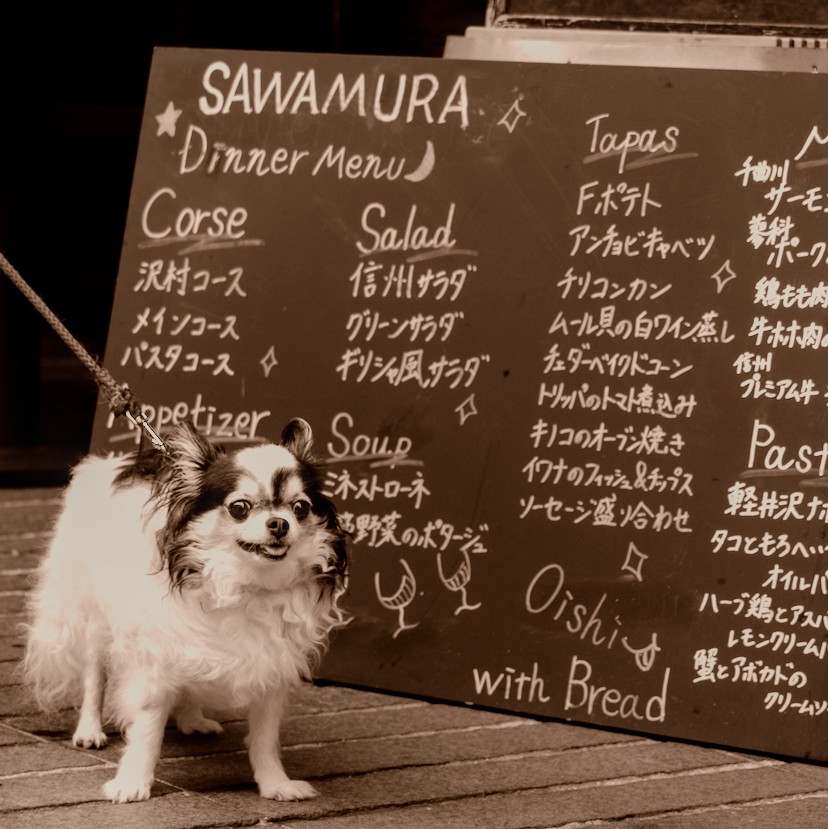 SAWAMURA
Dinner Menu
Corse
沢村コース
メインコース
パスタコース
Appetizer
Salad
信州サラダ
グリーンサラダ
ギリシャ風サラダ
Soup
ミネストローネ
野菜のポタージュ
Tapas
Fポテト
アンチョビキャベツ
チリコンカン
ムール貝の白ワイン蒸し
チェダーベイクドコーン
トリッパのトマト煮込み
キノコのオーブン焼き
イワナのフィッシュ&チップス
ソーセージ盛り合わせ
Oishii
with Bread
千曲川
サーモ
蓼科
ポーク
鶏もも肉
牛ホホ肉の
信州
プレミアム牛
Past
軽井沢ナポ
タコともろヘ…
オイルパ
ハーブ鶏とアスパ
レモンクリームパ
蟹とアボカドの
クリームソ